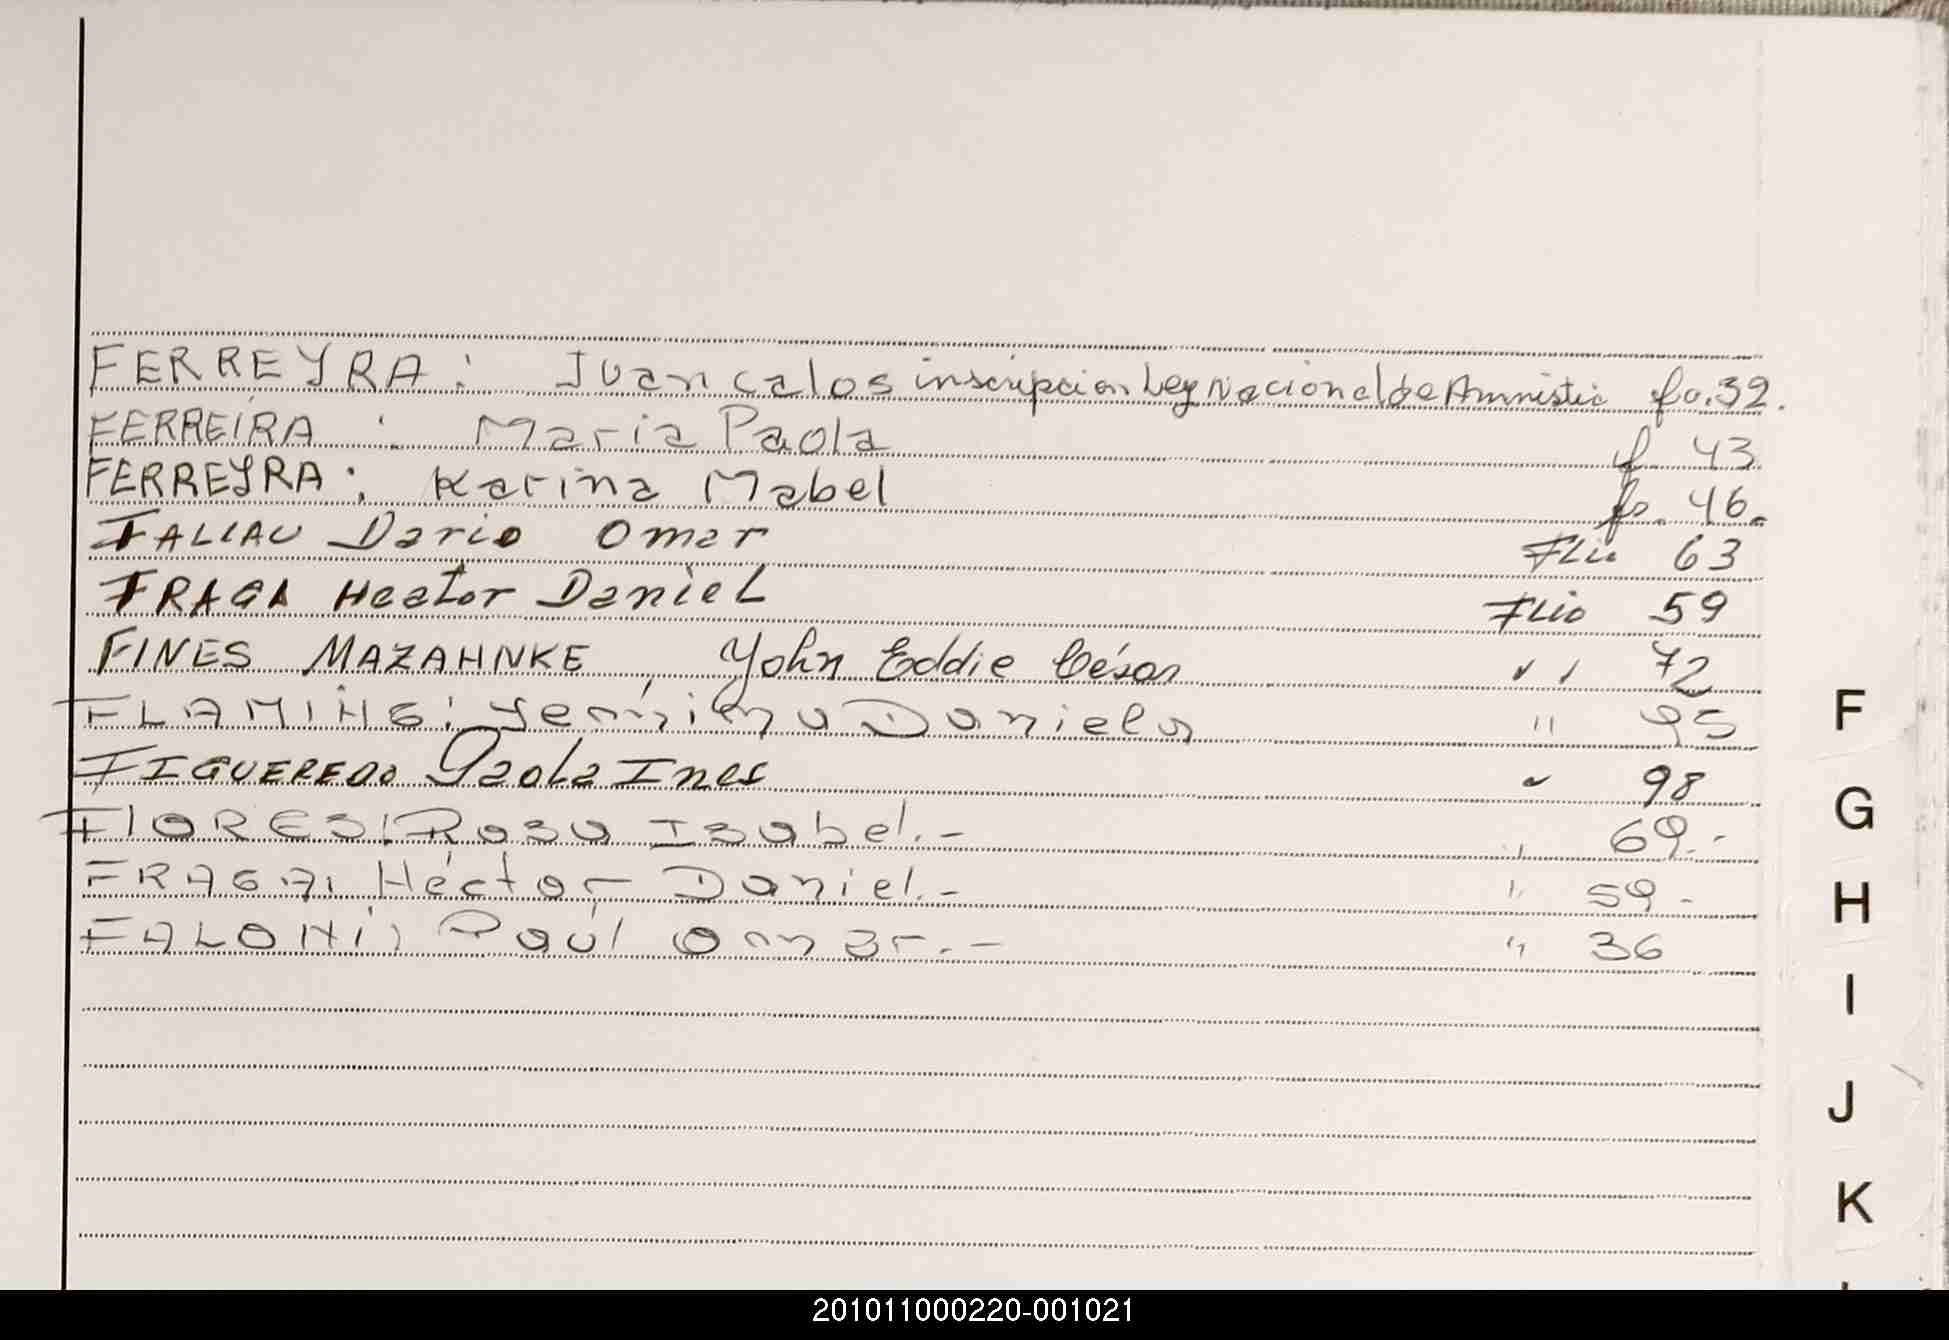 FERREYRA: Juan calos inscripcion Ley Nacional de Amnistia fo.32.
FERREIRA : Maria Paola f. 43
FERREYRA: Karina Mabel fo. 46.
FALLAU Dario Omar FLio 63
FRAGA Hector Daniel FLio 59
FINES MAZAHNKE, Yohn Eddie César " 72
FLAMING: Daniela " 95
FIGUEREDO Paola Ines " 98
FlORES: Rosa Isabel.- " 69.-
FRAGA, Héctor Daniel.- " 59-
Omar.- " 36
F
G
H
I
J
K
201011000220-001021